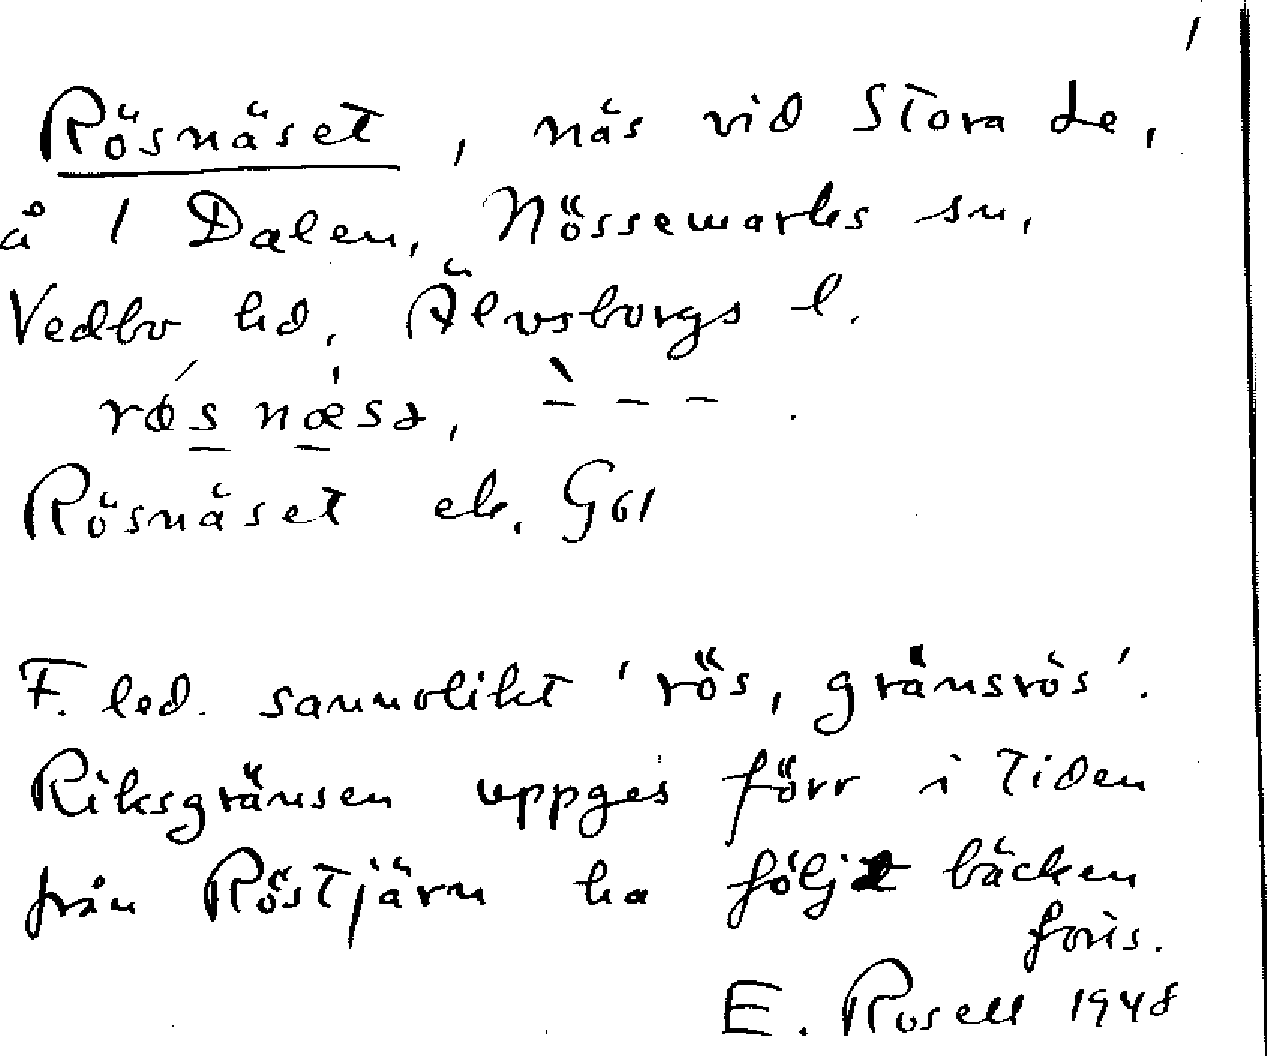 Rösnäset, näs vid Stora Le,
å 1 Dalen, Nössemarks sn,
Vedbo hd, Älvsborgs l.
Rösnäset ek. G61
F. led. sannolikt 'rös, gränsrös'.
Riksgränsen uppges förr i tiden
från Röstjärn ha följt bäcken
E. Rosell 1948